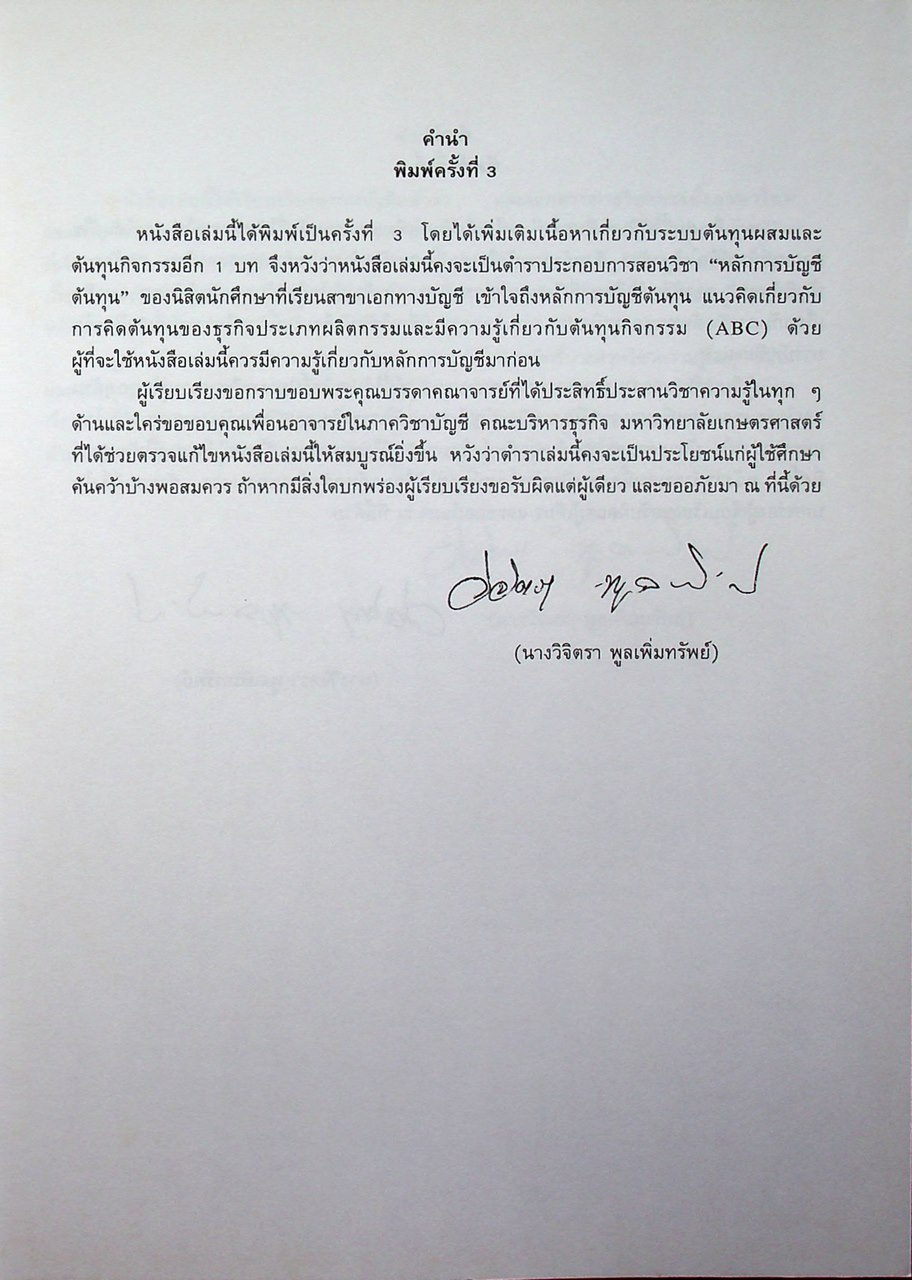 คำนำ
พิมพ์ครั้งที่ 3
หนังสือเล่มนี้ได้พิมพ์เป็นครั้งที่ 3 โดยได้เพิ่มเติมเนื้อหาเกี่ยวกับระบบต้นทุนผสมและ
ต้นทุนกิจกรรมอีก 1 บท จึงหวังว่าหนังสือเล่มนี้คงจะเป็นตำราประกอบการสอนวิชา “หลักการบัญชี
ต้นทุน” ของนิสิตนักศึกษาที่เรียนสาขาเอกทางบัญชี เข้าใจถึงหลักการบัญชีต้นทุน แนวคิดเกี่ยวกับ
การคิดต้นทุนของธุรกิจประเภทผลิตกรรมและมีความรู้เกี่ยวกับต้นทุนกิจกรรม (ABC) ด้วย
ผู้ที่จะใช้หนังสือเล่มนี้ควรมีความรู้เกี่ยวกับหลักการบัญชีมาก่อน
ผู้เรียบเรียงขอกราบขอบพระคุณบรรดาคณาจารย์ที่ได้ประสิทธิ์ประสานวิชาความรู้ในทุก ๆ
ด้านและใคร่ขอขอบคุณเพื่อนอาจารย์ในภาควิชาบัญชี คณะบริหารธุรกิจ มหาวิทยาลัยเกษตรศาสตร์
ที่ได้ช่วยตรวจแก้ไขหนังสือเล่มนี้ให้สมบูรณ์ยิ่งขึ้น หวังว่าตำราเล่มนี้คงจะเป็นประโยชน์แก่ผู้ใช้ศึกษา
ค้นคว้าบ้างพอสมควร ถ้าหากมีสิ่งใดบกพร่องผู้เรียบเรียงขอรับผิดแต่ผู้เดียว และขออภัยมา ณ ที่นี้ด้วย
(นางวิจิตรา พูลเพิ่มทรัพย์)